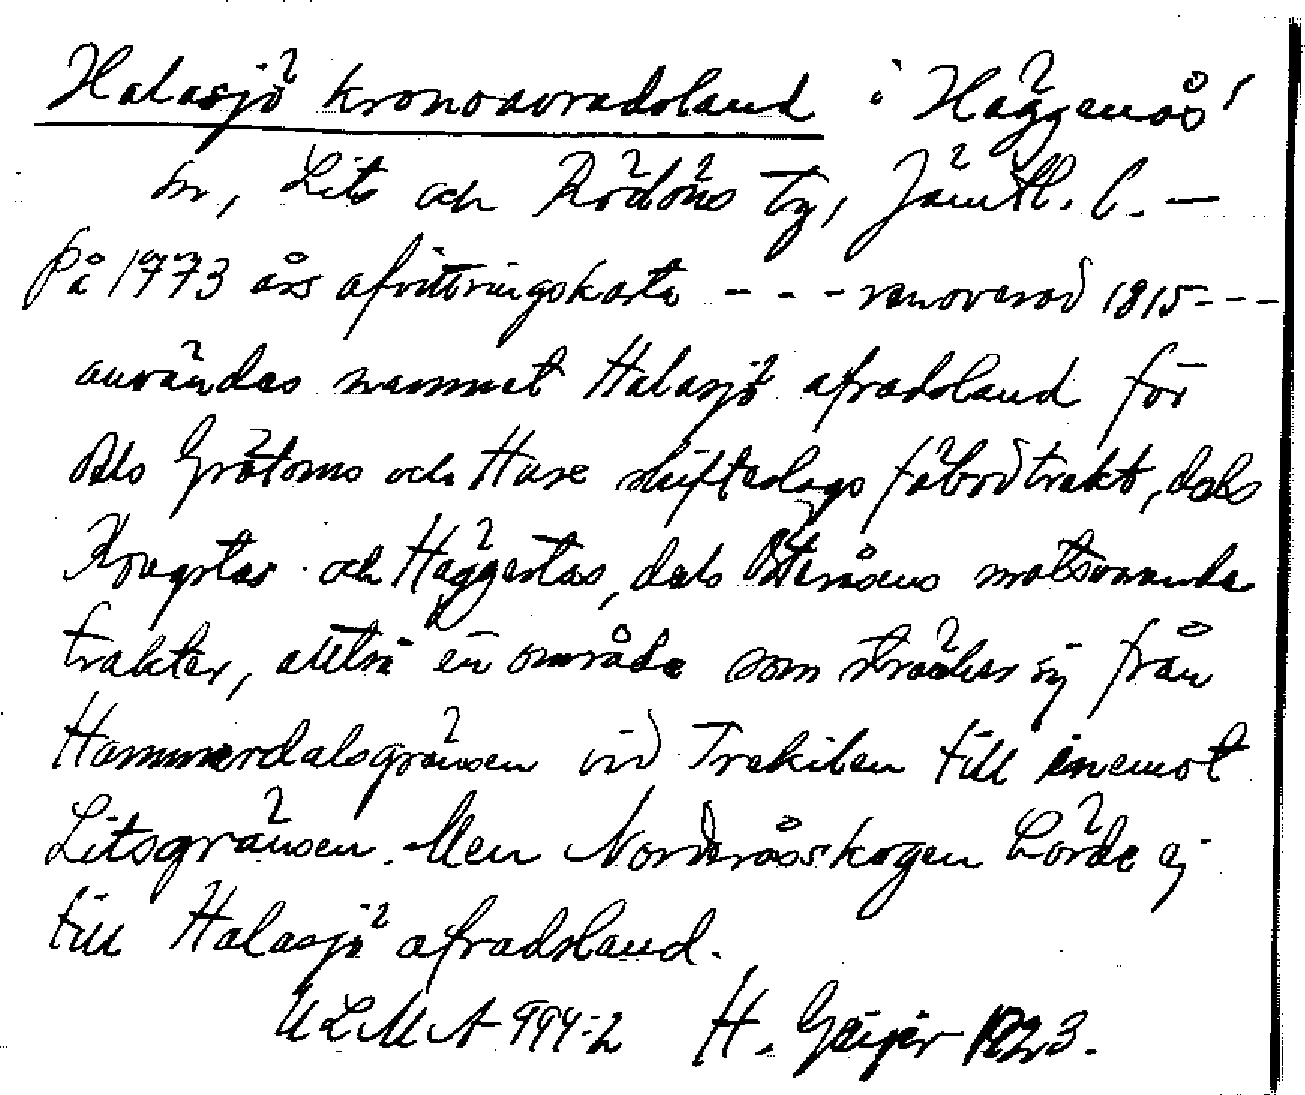 Halasjö kronoavradsland i Häggenås'
sn, Lits och Rödöns Tg, Jämtl. l. —
På 1773 års afvittringskarta - - - renoverad 1815 - - -
användes namnet Halasjö afradsland för
dels Gråtoms och Huse skifteslags fäbodtrakt, dels
Kougstas och Häggestas, dels Österåsens motsvarande
trakter, alltså en område som sträcker sig från
Hammerdalsgränsen vid Trekilen till inemot
Litsgränsen. Men Norderåsskogen hörde ej
till Halasjö afradsland.
ULMA 994:2 H. Geijer 1923.